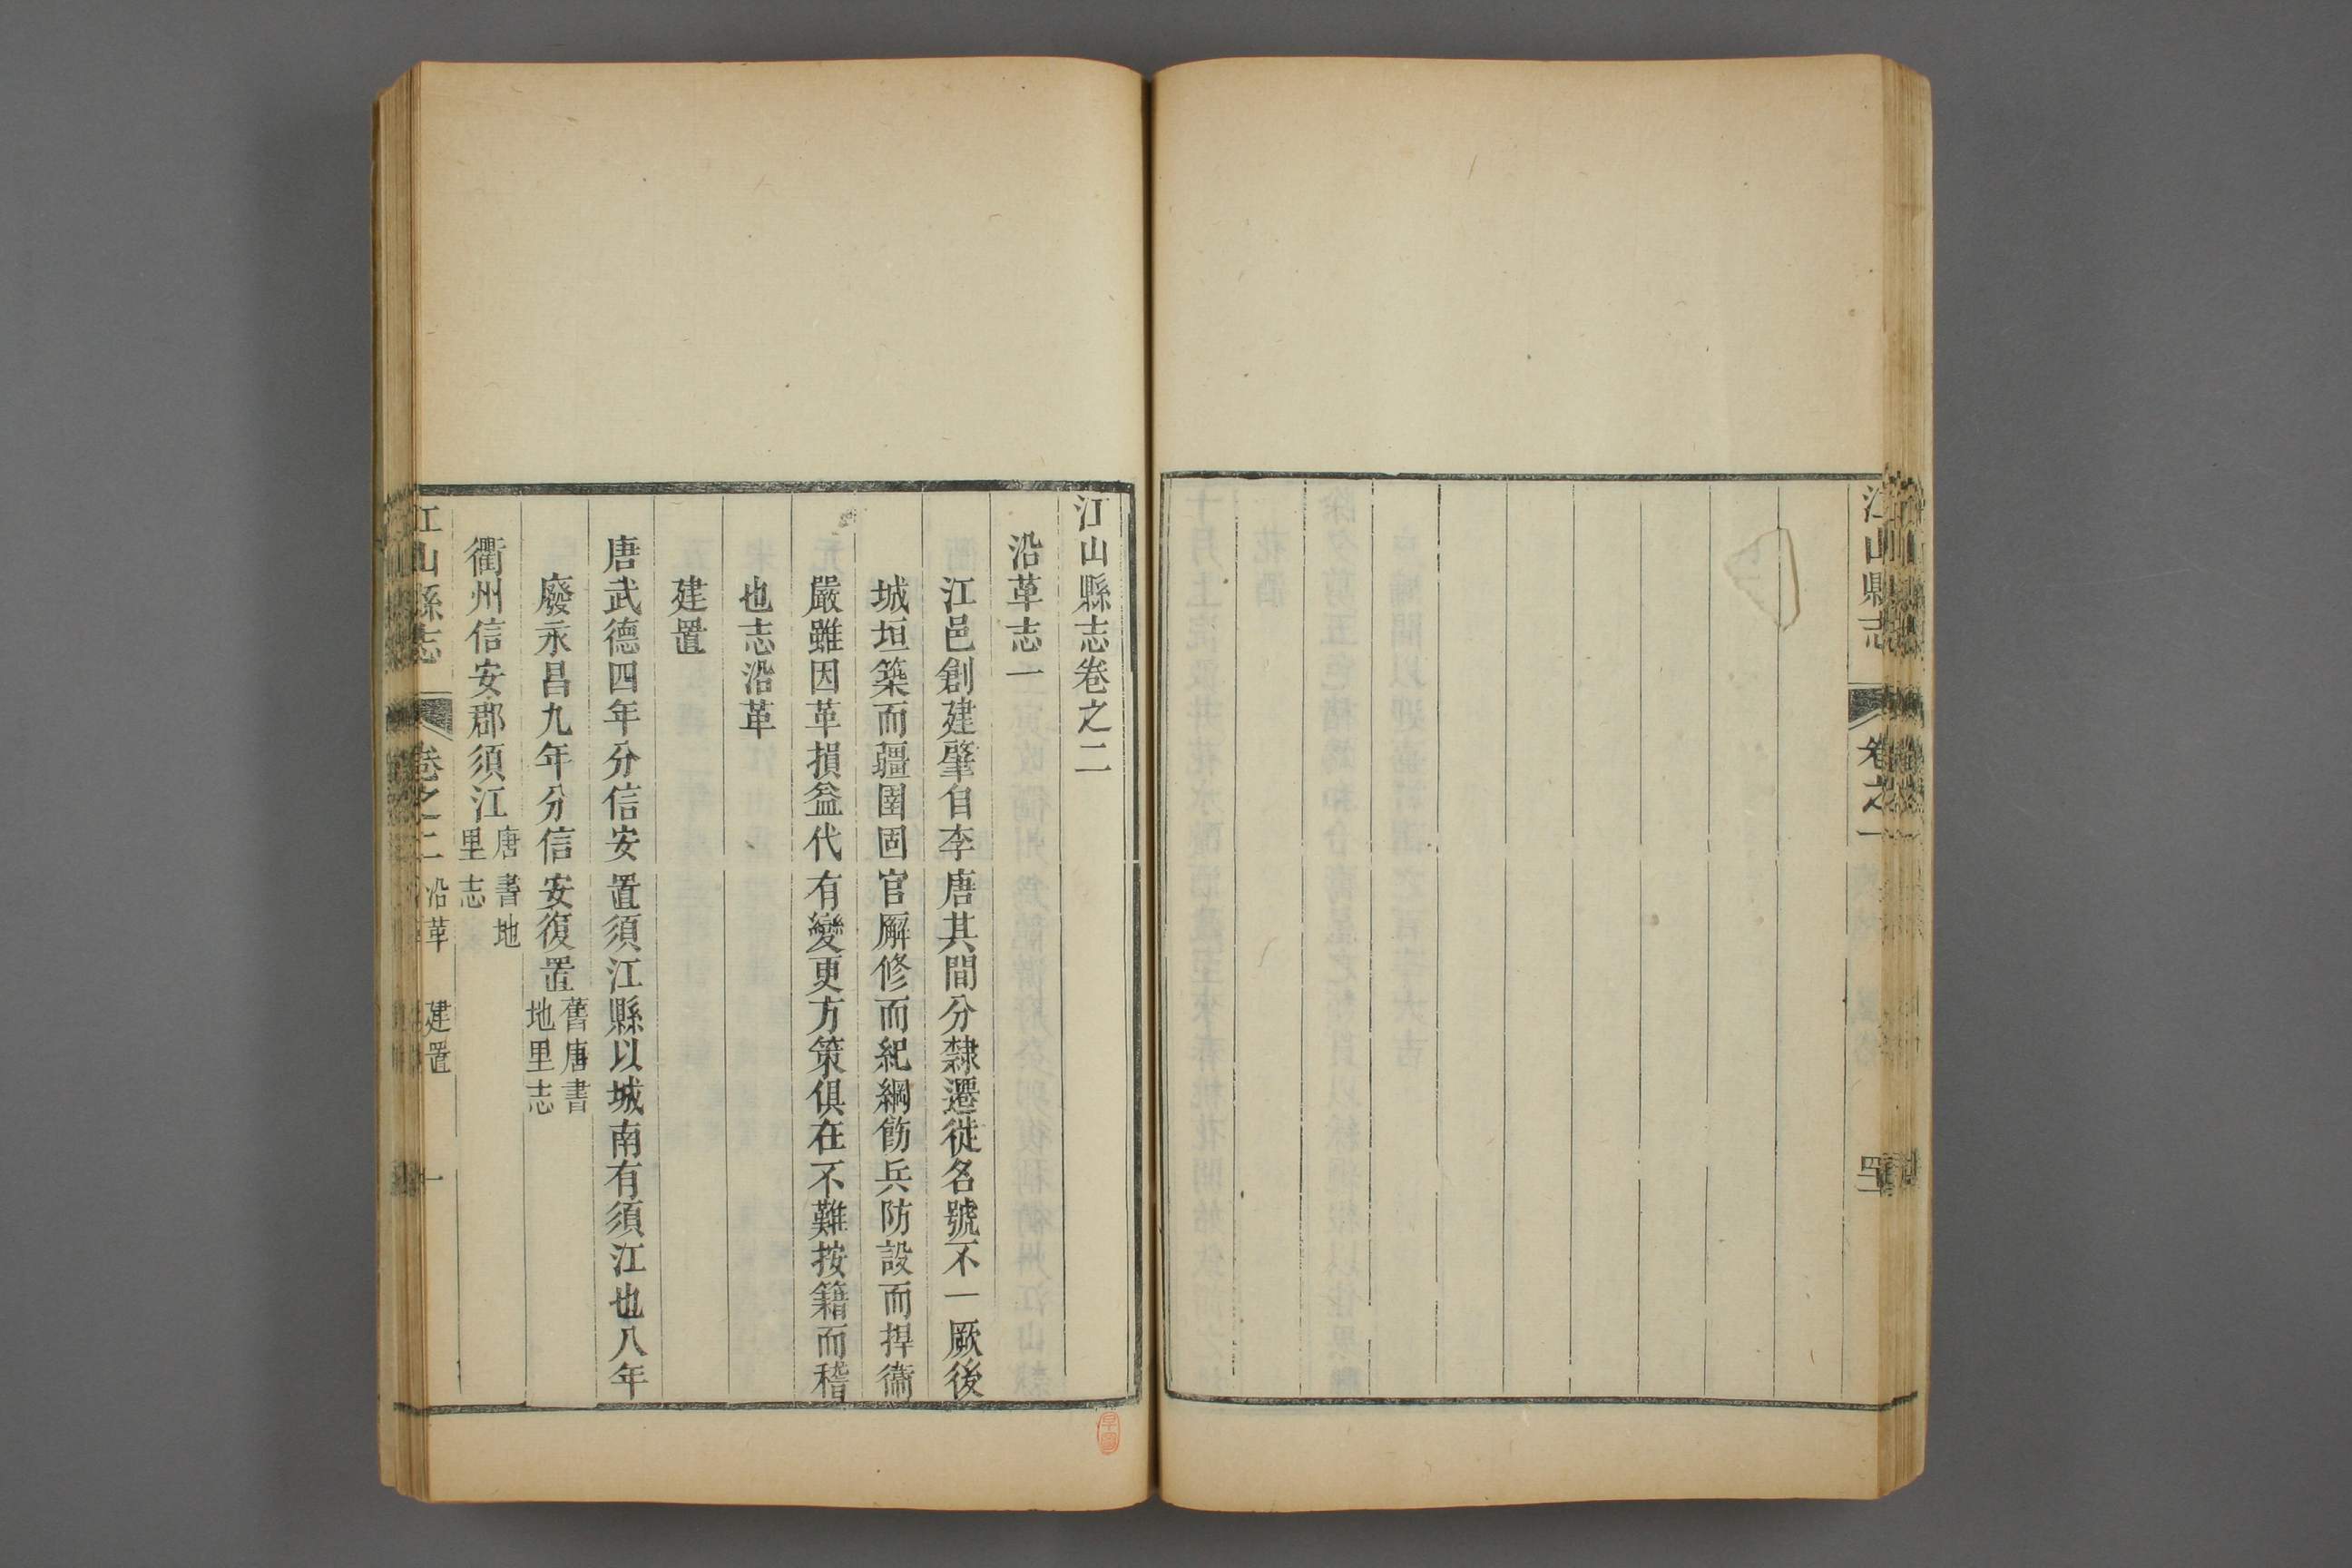 江山縣志
卷之一
江山縣志卷之二
沿革志一
江邑創建肇自李唐其間分隸遷徙名號不一厥後
城垣築而疆圉固官廨修而紀綱飭兵防設而捍衞
嚴雖因革損益代有變更方策俱在不難按籍而稽
也志沿革
建置
唐武德四年分信安置須江縣以城南有須江也八年
廢永昌九年分信安復置舊唐書地里志
衢州信安郡須江唐書地里志
江山縣志 卷之二 沿革 建置 一